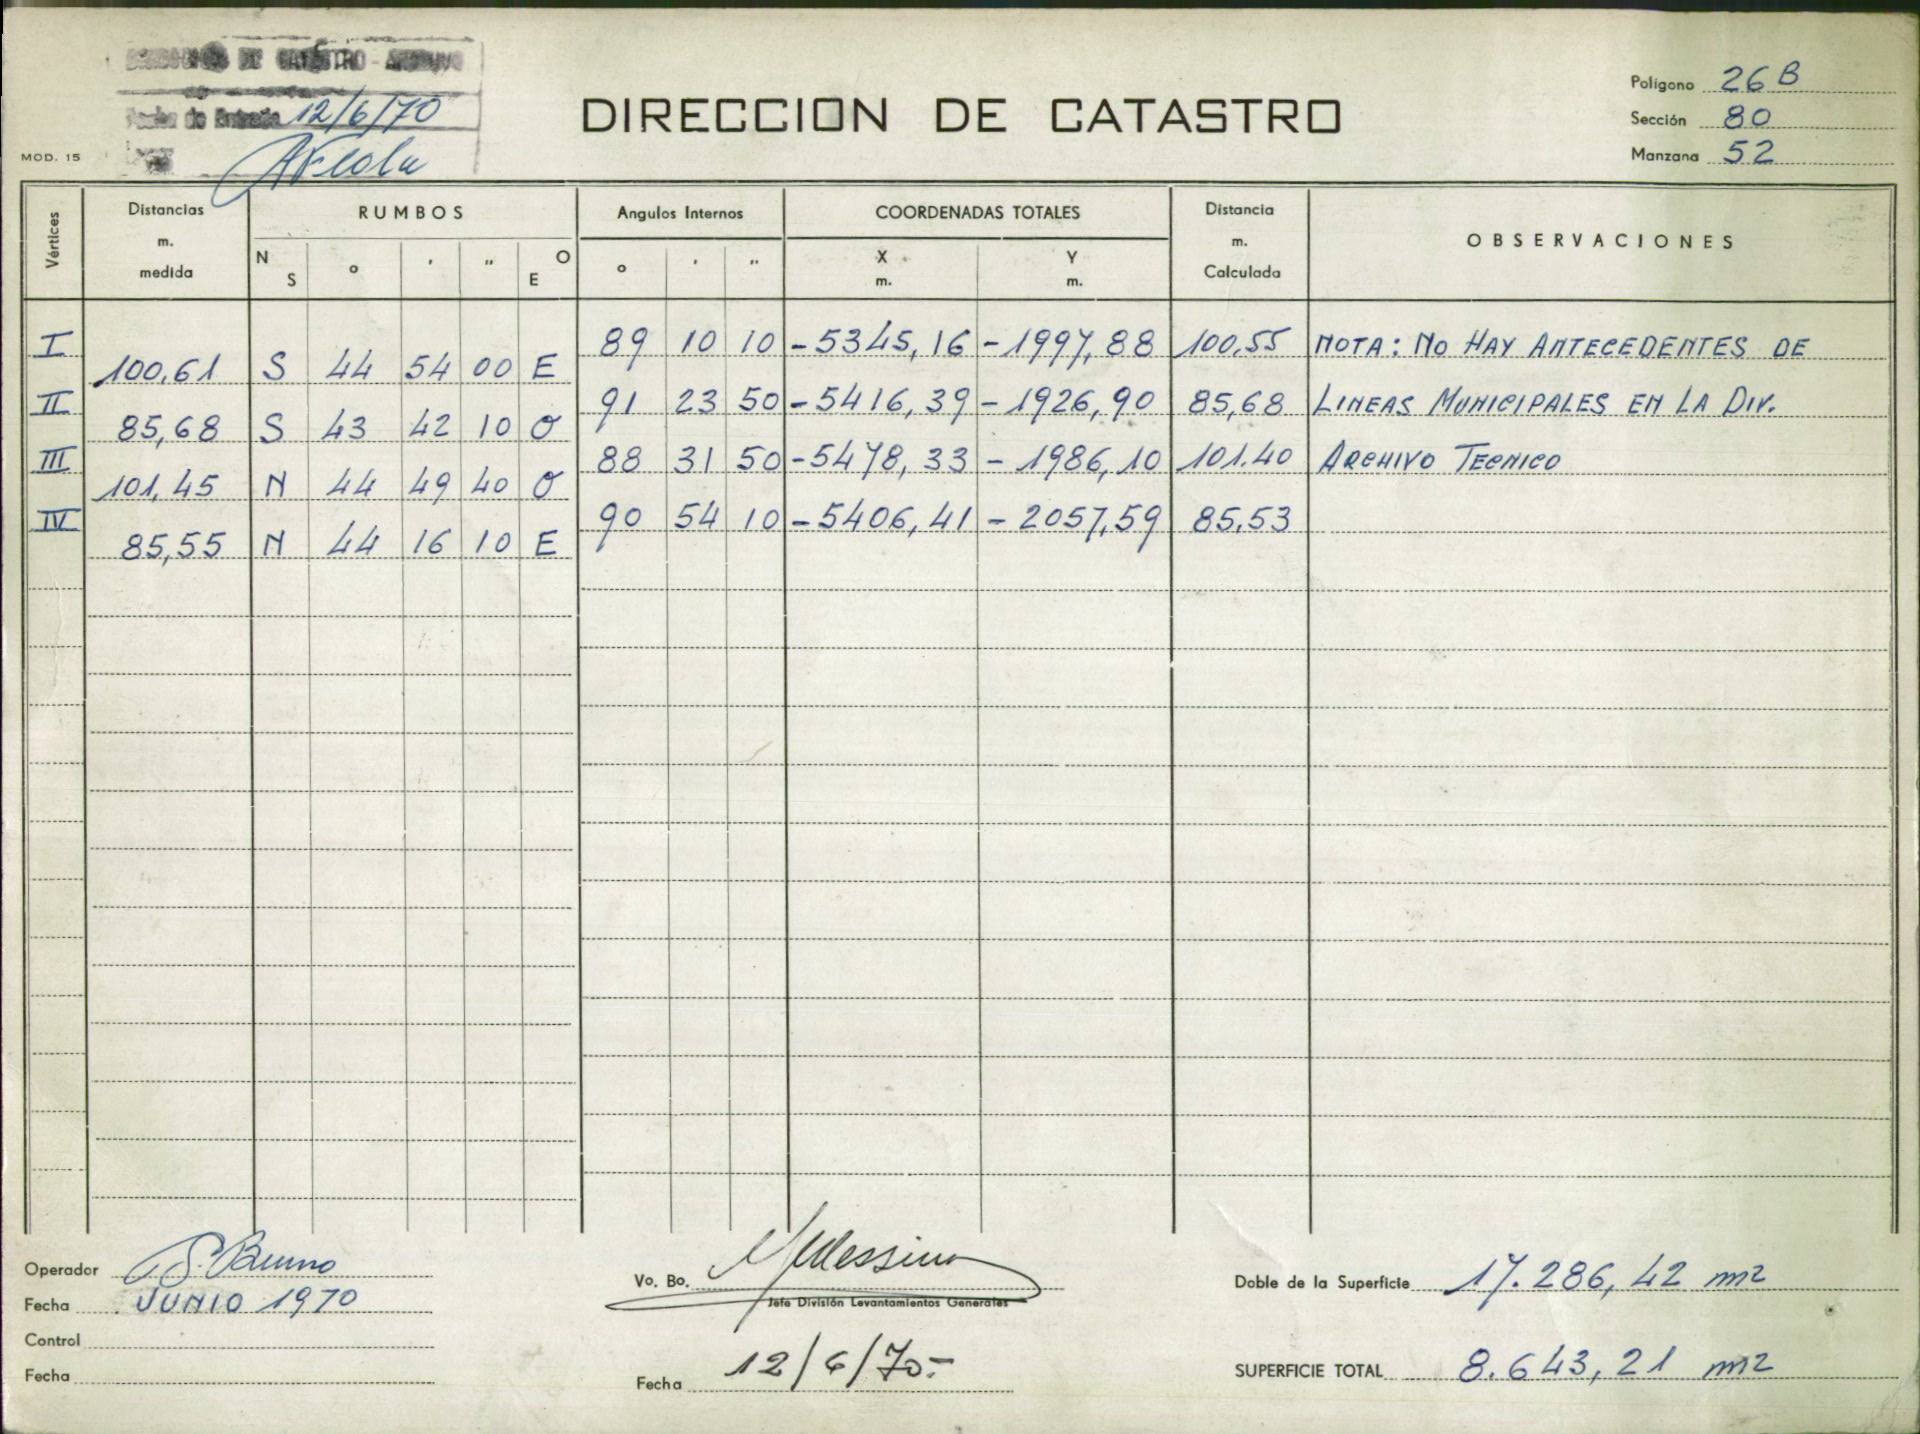 DE CATASTRO - ARCHIVO
Fecha de Entrada 12/6/70
MOD. 15
DIRECCION DE CATASTRO
Polígono 26 B
Sección 80
Manzana 52
Vértices
Distancias m. medida
RUMBOS
N S ° ' " O E
Angulos Internos
° ' "
COORDENADAS TOTALES
X m.
Y m.
Distancia m. Calculada
OBSERVACIONES
I 89 10 10 -5345,16 -1997,88 100.55 NOTA: NO HAY ANTECEDENTES DE
100,61 S 44 54 00 E
II 91 23 50 -5416,39 -1926,90 85,68 LINEAS MUNICIPALES EN LA DIV.
85,68 S 43 42 10 O
III 88 31 50 -5478,33 -1986,10 101.40 ARCHIVO TECNICO
101,45 N 44 49 40 O
IV 90 54 10 -5406,41 -2057,59 85,53
85,55 N 44 16 10 E
Operador S. Bruno
Fecha JUNIO 1970
Control
Fecha
Vo. Bo.
Jefe División Levantamientos Generales
Fecha 12/6/70.-
Doble de la Superficie 17.286,42 m2
SUPERFICIE TOTAL 8.643,21 m2